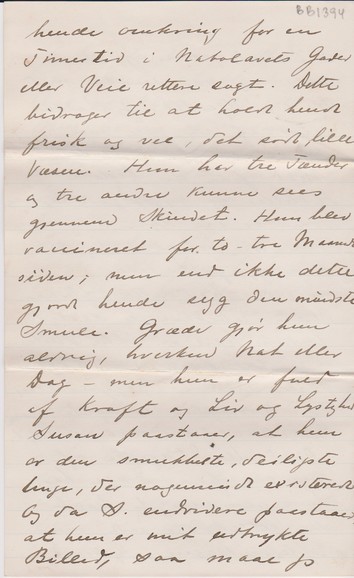 BB1394
hende omkring for en
Times tid i Nabolavets Gader
eller Veie rettere sagt. Dette
bidrager til at holde hende
frisk og vel, det søde, lille
Væsen. Hun har tre Tænder
og tre andre kunne sees
gjennem Skindet. Hun blev
vaccineret for to-tre Maaned
siden; men end ikke dette
gjorde hende syg den mindste
Smule. Græde gjør hun
aldrig, hverken Nat eller
Dag - men hun er fuld
af Kraft og Liv og Lystighed
Susan paastaar, at hun
er den smukkeste, deiligste
Unge, der nogensinde
og da S. endvidere paastaar
at hun er mit udtrykte
Billed, saa maae jo